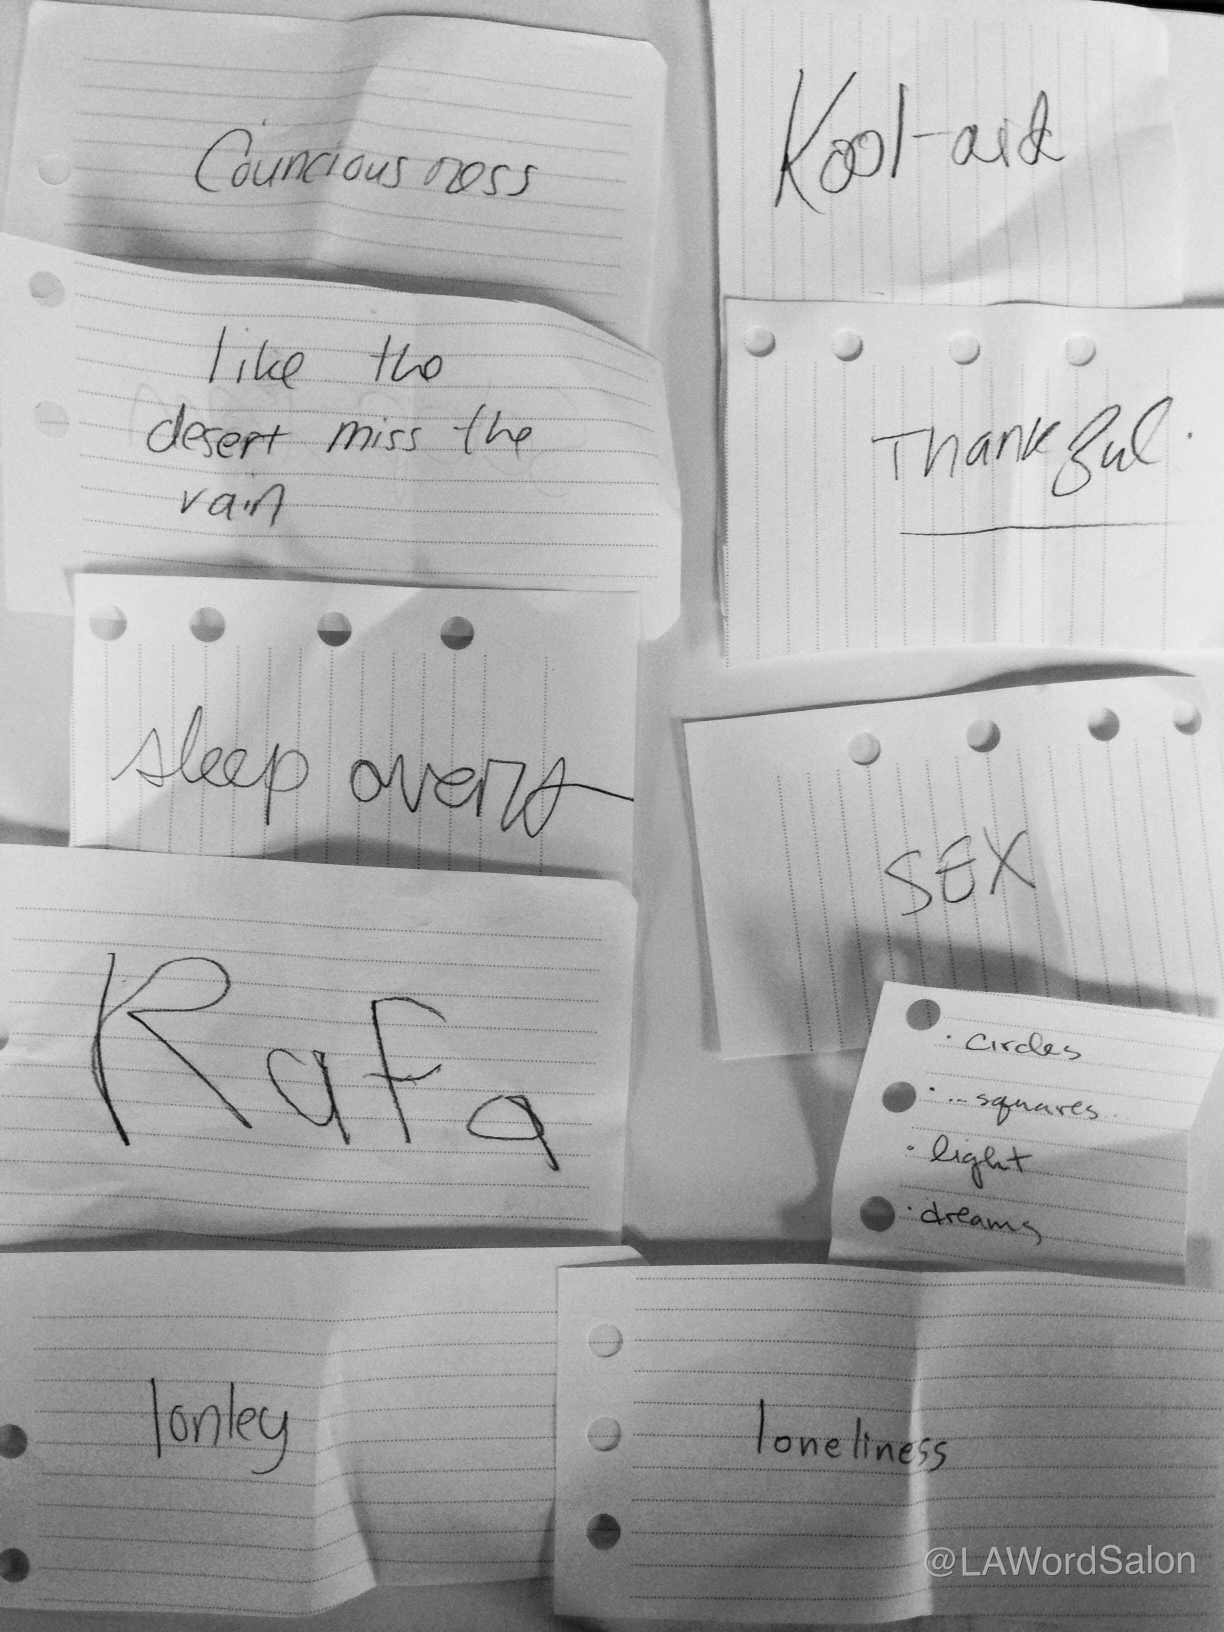 Councious ness
like the
desert miss the
rain
sleep overs
Rafa
lonley
Kool-aid
Thankful.
SEX
· circles
· ...squares
· light
· dreams
loneliness
@LAWordSalon